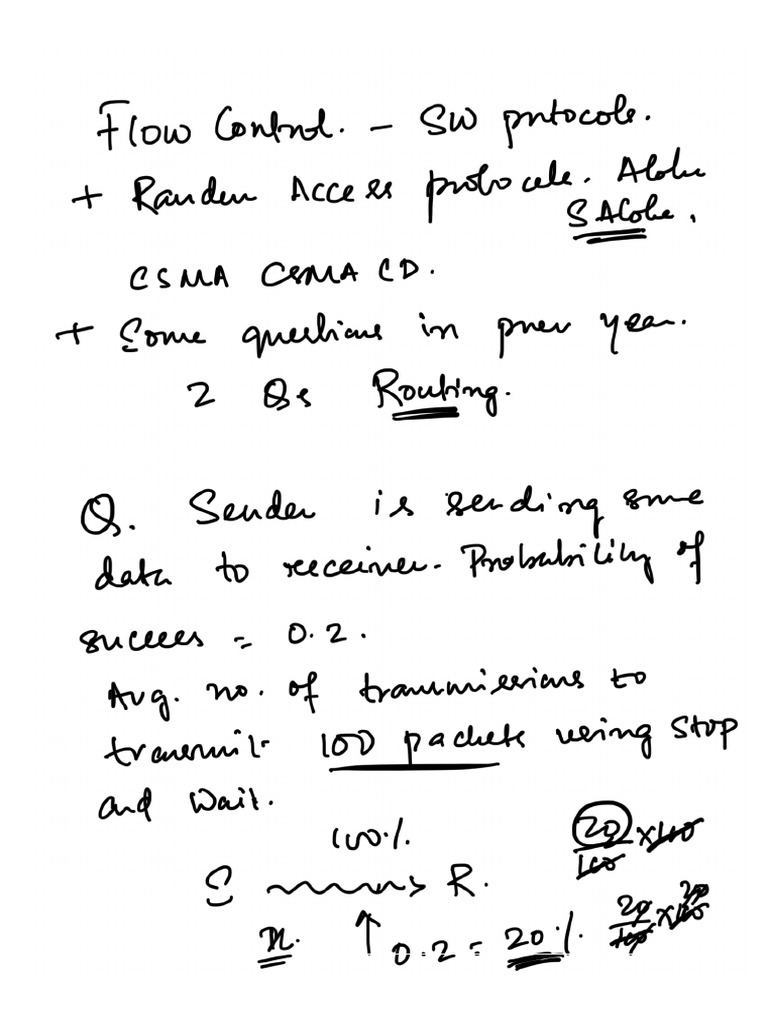 Flow Control. - SW protocols.
+ Random Access protocols. Aloha
SAloha.
CSMA CSMA CD.
+ Some questions in prev year.
2 Qs Routing.
Q. Sender is sending some
data to receiver. Probability of
success = 0.2.
Avg. no. of transmissions to
transmit 100 packets using Stop
and Wait.
100%
S R.
n. 0.2 = 20%.
20/100 x 100
20/100 x 100 20